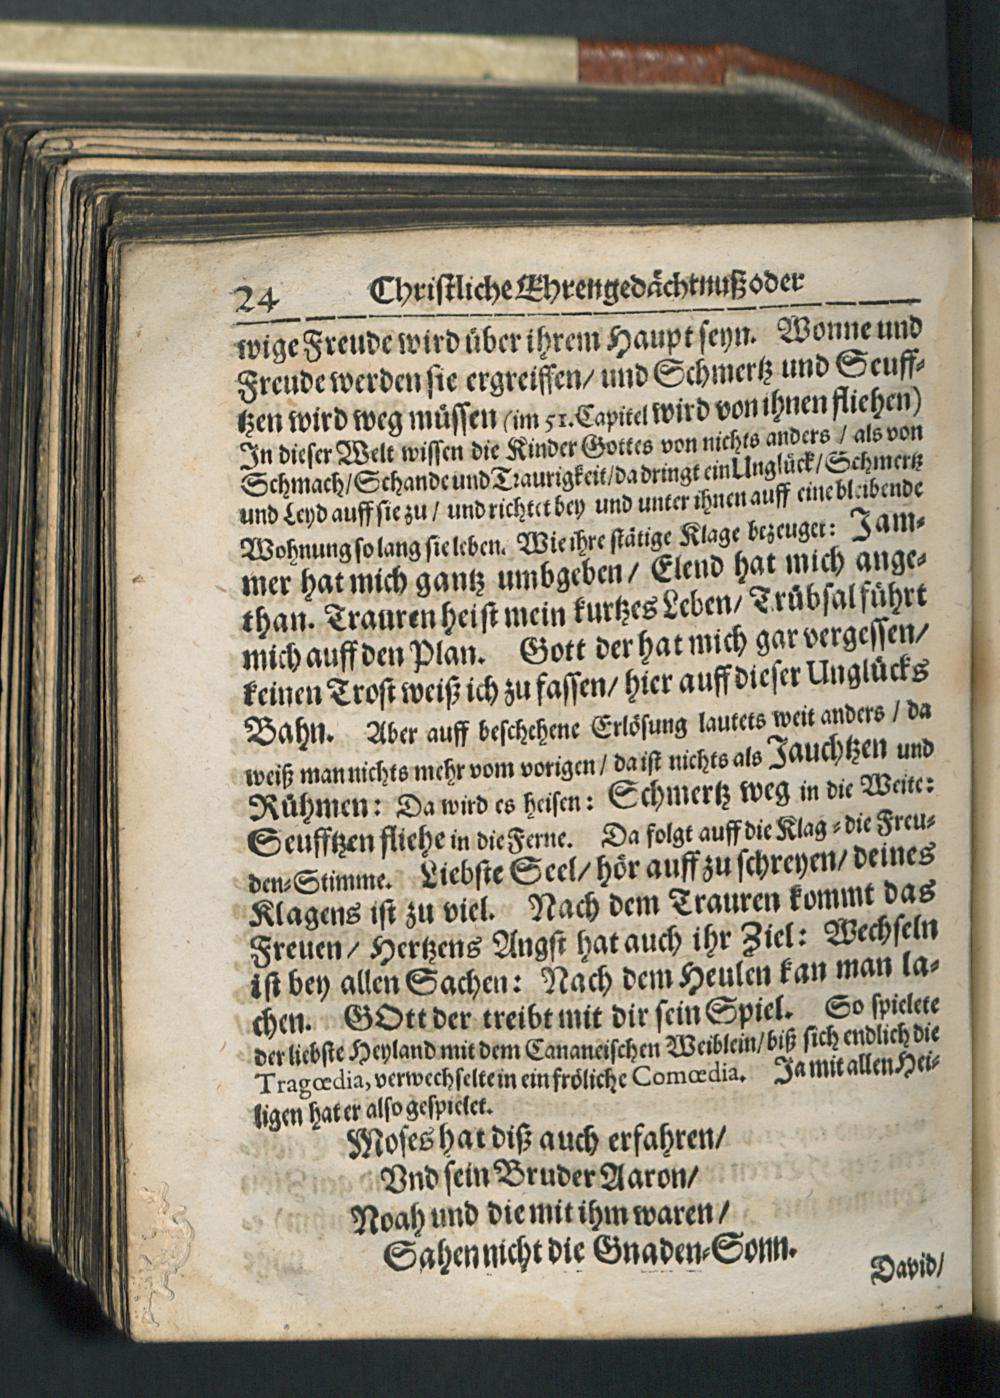 24 Christliche Ehrengedächtnuß oder
wige Freude wird über ihrem Haupt seyn. Wonne und
Freude werden sie ergreiffen/ und Schmertz und Seuff-
tzen wird weg müssen (im 51. Capitel wird von ihnen fliehen)
In dieser Welt wissen die Kinder Gottes von nichts anders / als von
Schmach/ Schande und Traurigkeit/ da dringt ein Unglück/ Schmertz
und Leyd auff sie zu / und richtet bey und unter ihnen auff eine bleibende
Wohnung so lang sie leben. Wie ihre stätige Klage bezeuget: Jam-
mer hat mich gantz umbgeben/ Elend hat mich ange-
than. Trauren heist mein kurtzes Leben/ Trübsal führt
mich auff den Plan. Gott der hat mich gar vergessen/
keinen Trost weiß ich zu fassen/ hier auff dieser Unglücks
Bahn. Aber auff beschehene Erlösung lautets weit anders / da
weiß man nichts mehr vom vorigen / da ist nichts als Jauchtzen und
Rühmen: Da wird es heisen: Schmertz weg in die Weite:
Seufftzen fliehe in die Ferne. Da folgt auff die Klag-die Freu-
den-Stimme. Liebste Seel/ hör auff zu schreyen/ deines
Klagens ist zu viel. Nach dem Trauren kommt das
Freuen/ Hertzens Angst hat auch ihr Ziel: Wechseln
ist bey allen Sachen: Nach dem Heulen kan man la-
chen. GOtt der treibt mit dir sein Spiel. So spielete
der liebste Heyland mit dem Cananeischen Weiblein/ biß sich endlich die
Tragœdia, verwechselte in ein fröliche Comœdia. Ja mit allen Hei-
ligen hat er also gespielet.
Moses hat diß auch erfahren/
Vnd sein Bruder Aaron/
Noah und die mit ihm waren /
Sahen nicht die Gnaden-Sonn.
David/